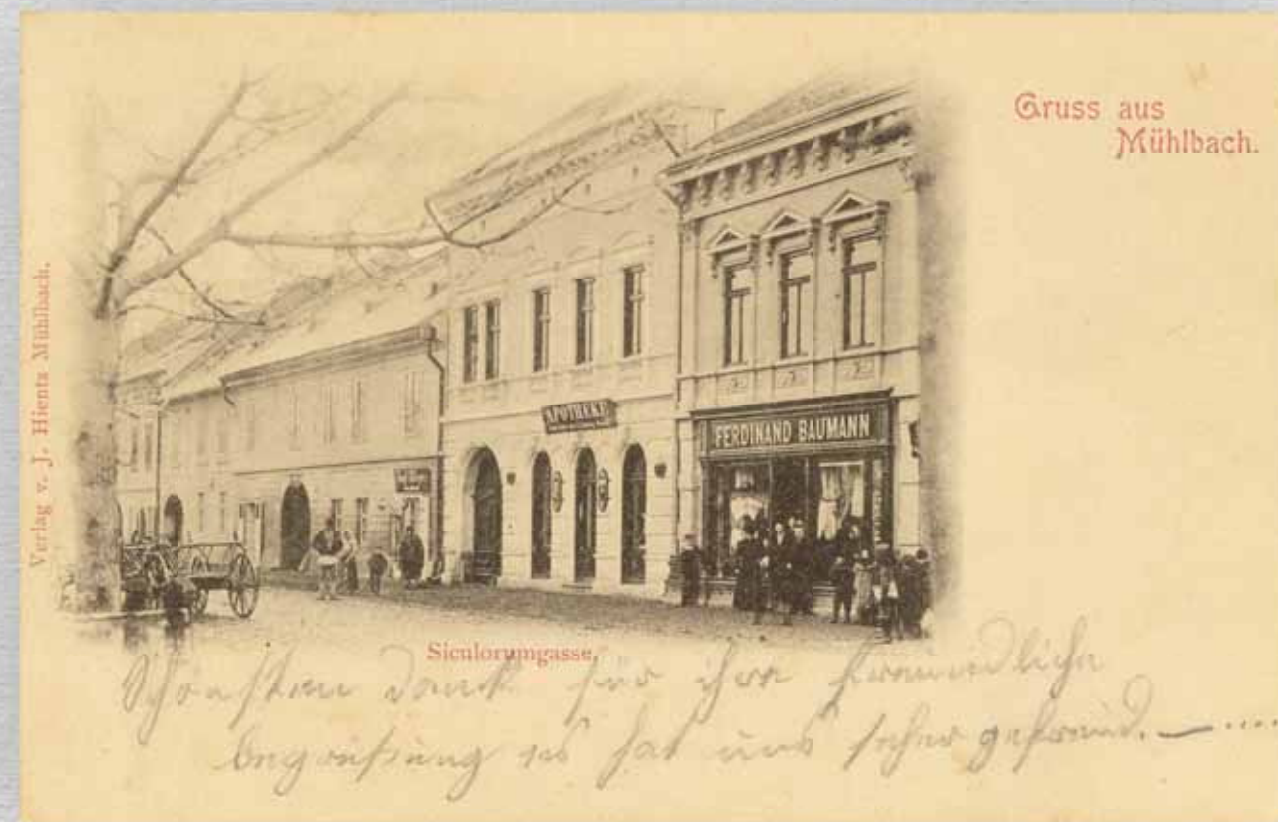 Gruss aus
Mühlbach.
Verlag v. J. Hientz Mühlbach.
APOTHEKE
FERDINAND BAUMANN
Siculorumgasse.
Schönsten Dank für ihre freundliche
begrüßung es hat uns seher gefreud. — ....